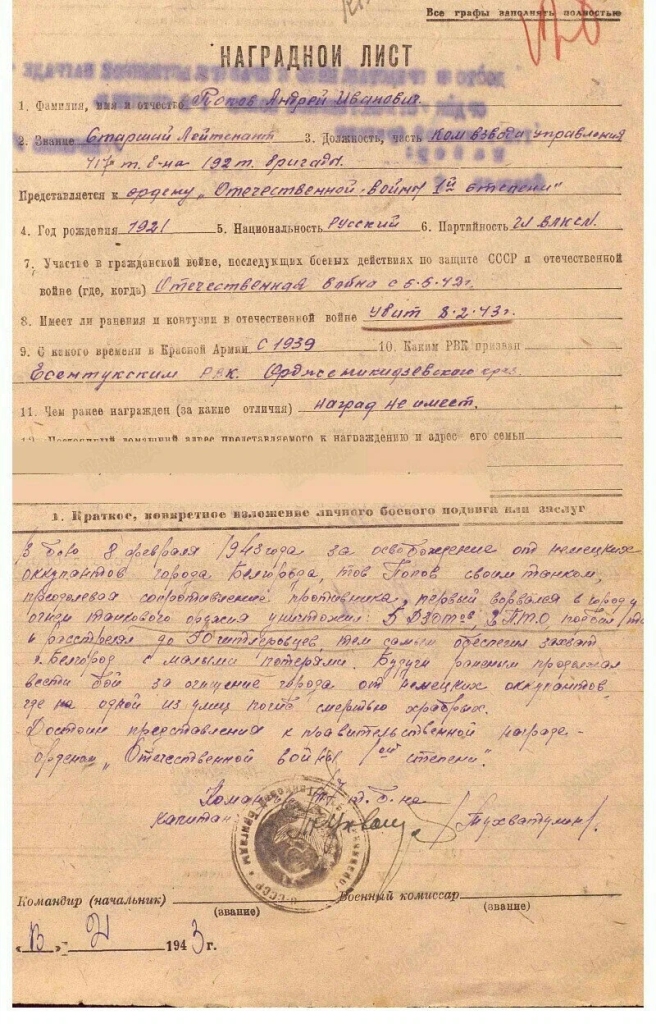 Все графы заполнять полностью
НАГРАДНОЙ ЛИСТ
1. Фамилия, имя и отчество Попов Андрей Иванович.
2. Звание Старший Лейтенант 3. Должность, часть Ком взвода управления
417 т. б-на 192 т. бригады.
Представляется к ордену „Отечественной войны 1й степени"
4. Год рождения 1921 5. Национальность Русский 6. Партийность Чл ВЛКСМ.
7. Участие в гражданской войне, последующих боевых действиях по защите СССР и отечественной
войне (где, когда) Отечественная война с 5.5.42г.
8. Имеет ли ранения и контузии в отечественной войне Убит 8.2.43г.
9. С какого времени в Красной Армии С 1939 10. Каким РВК призван
Есентукским РВК. Орджоникидзевского края.
11. Чем ранее награжден (за какие отличия) наград не имеет.
12. Постоянный домашний адрес представляемого к награждению и адрес его семьи
1. Краткое, конкретное изложение личного боевого подвига или заслуг
В бою 8 февраля 1943 года за освобождение от немецких
оккупантов города Белгорода, тов Попов своим танком,
преодолевая сопротивление противника, первый ворвался в город и
огнем танкового оружия уничтожил: 5 ДЗОТов, 2 ПТО, подбил
и расстрелял до 70 гитлеровцев, тем самым обеспечил захват
г. Белгород с малыми потерями. Будучи раненым продолжал
вести бой за очищение города от немецких оккупантов,
где на одной из улиц погиб смертью храбрых.
Достоин представления к правительственной награде-
орденом „Отечественной войны 1ой степени".
Командир т. б-на
капитан: /Тухватулин/.
Командир (начальник) Военный комиссар
(звание) (звание)
1943 г.